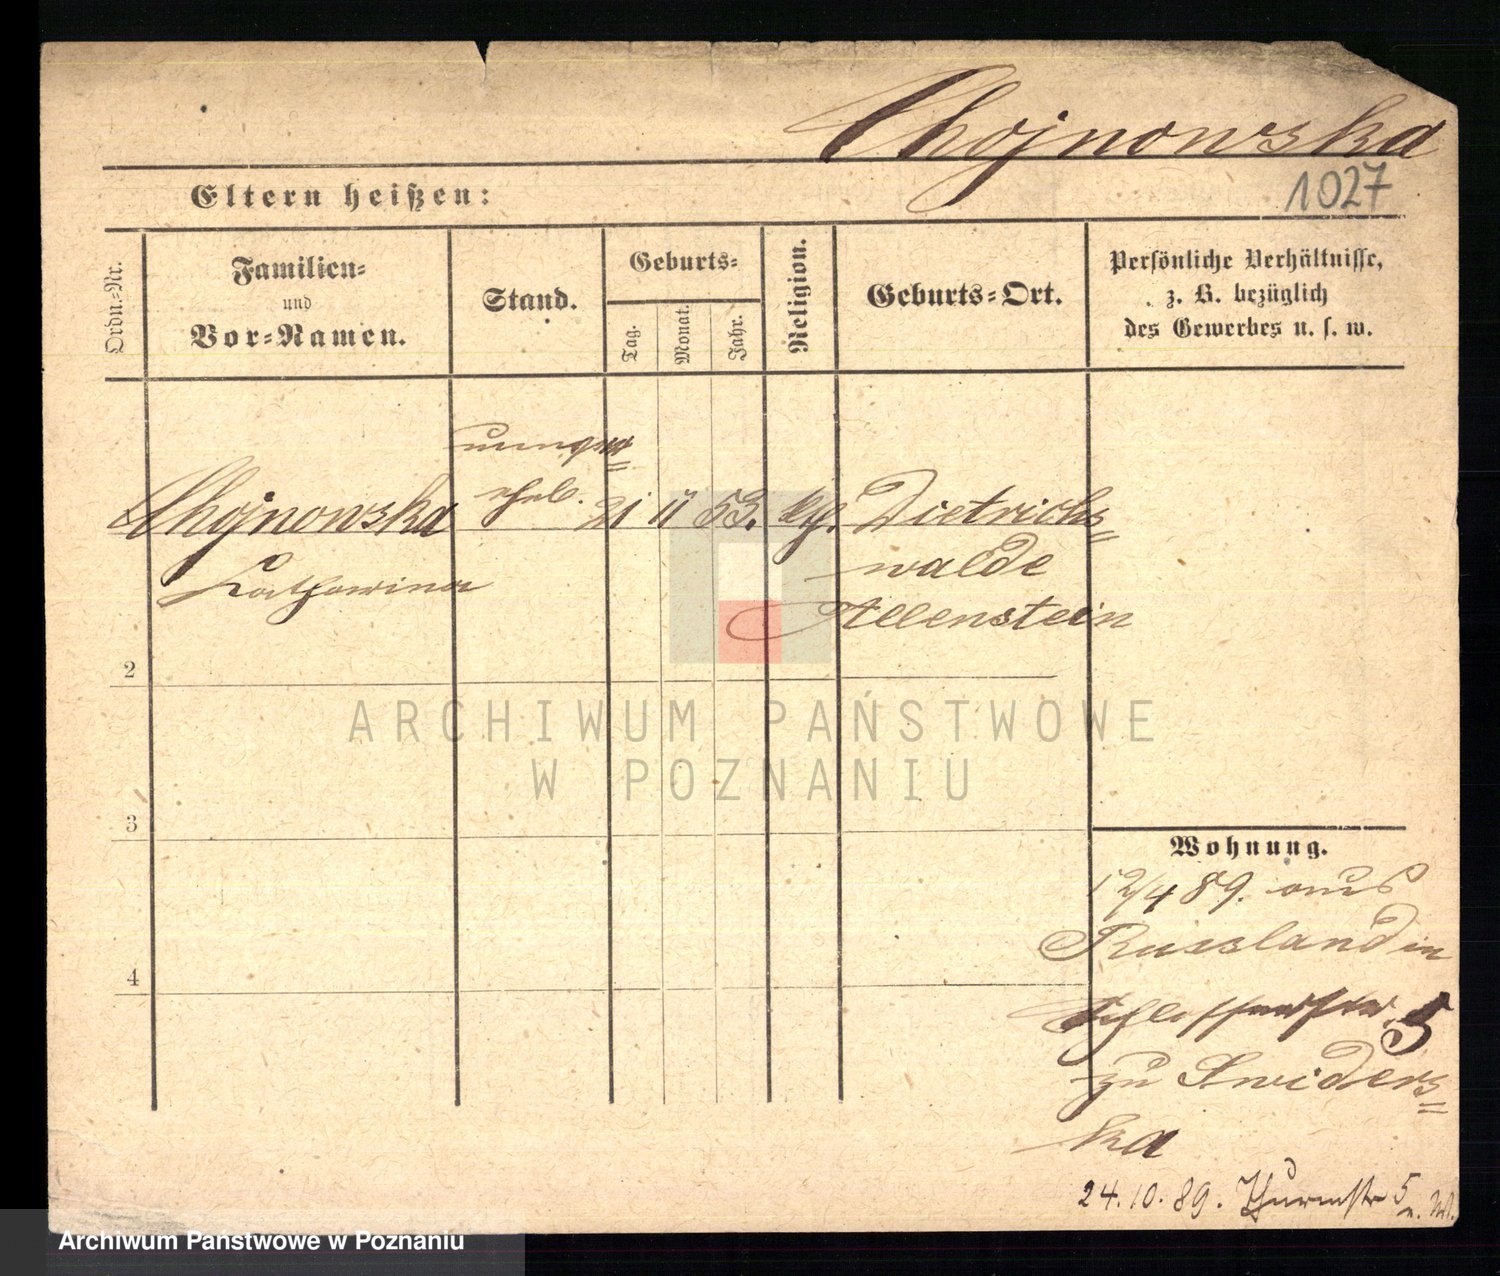 Chojnowska
1027
Eltern heißen:
Ordn.-Nr.
Familien-
und
Vor-Namen.
Stand.
Geburts-
Tag.
Monat.
Jahr.
Religion.
Geburts-Ort.
Persönliche Verhältnisse,
z. B. bezüglich
des Gewerbes u. s. w.
Chojnowska
Catharina
21 11 53.
Dietrichs=
walde
Allenstein
2
3
4
Wohnung.
12/4 89. aus
Russland in
5
zu Swiders=
ka
24.10.89. Thurmstr 5
ARCHIWUM PAŃSTWOWE
W POZNANIU
Archiwum Państwowe w Poznaniu